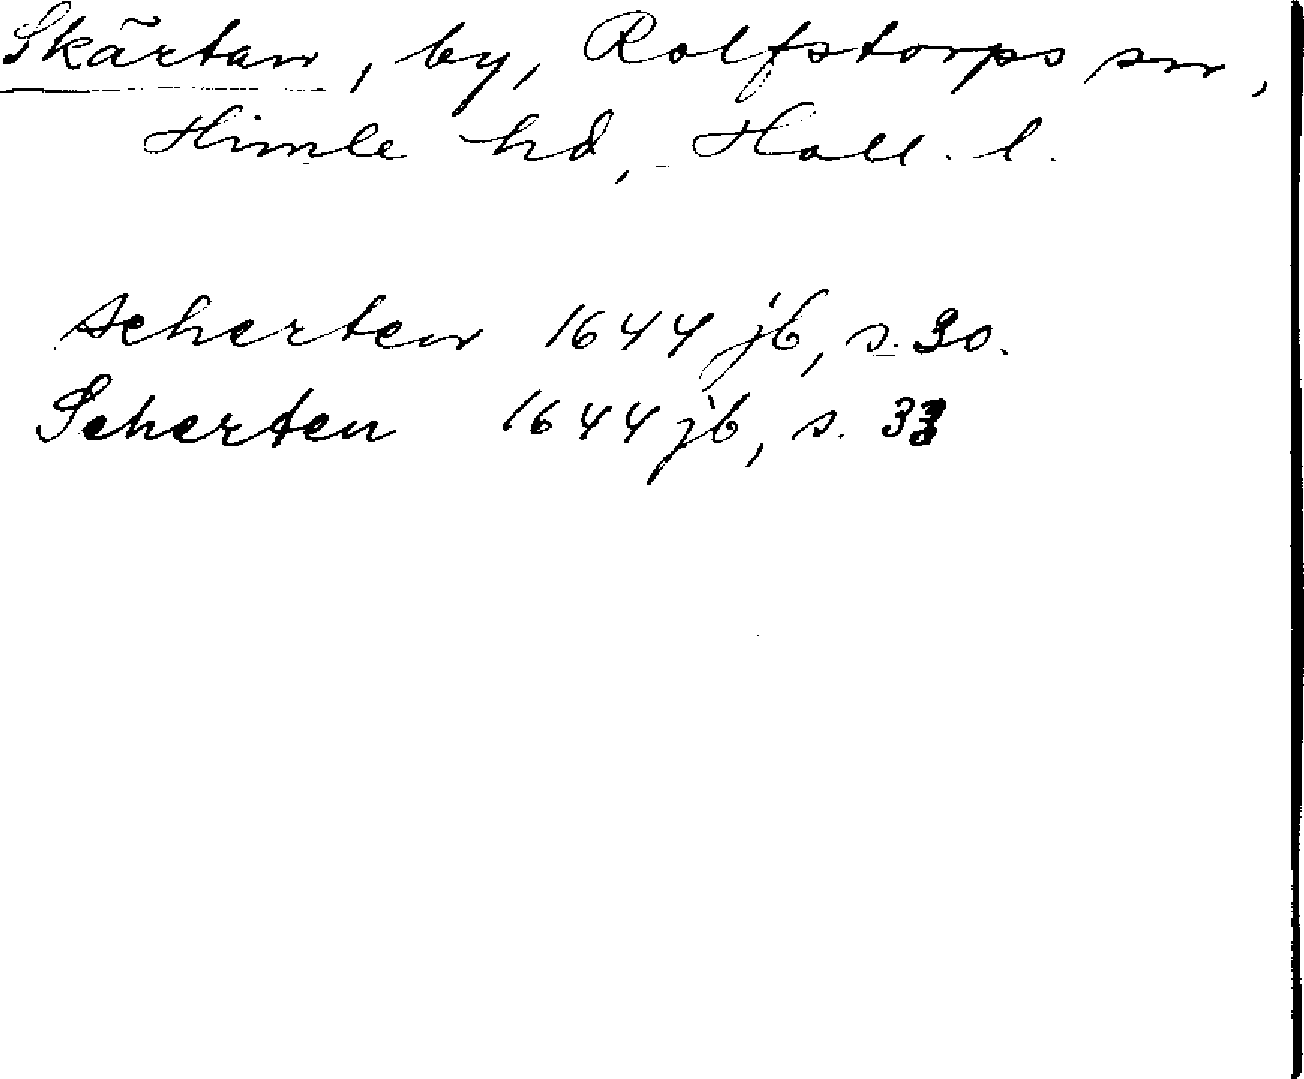 Skärtan, by, Rolfstorps sn,
Himle hd, Hall. l.
scherten 1644 jb, s. 30.
Scherten 1644 jb, s. 33